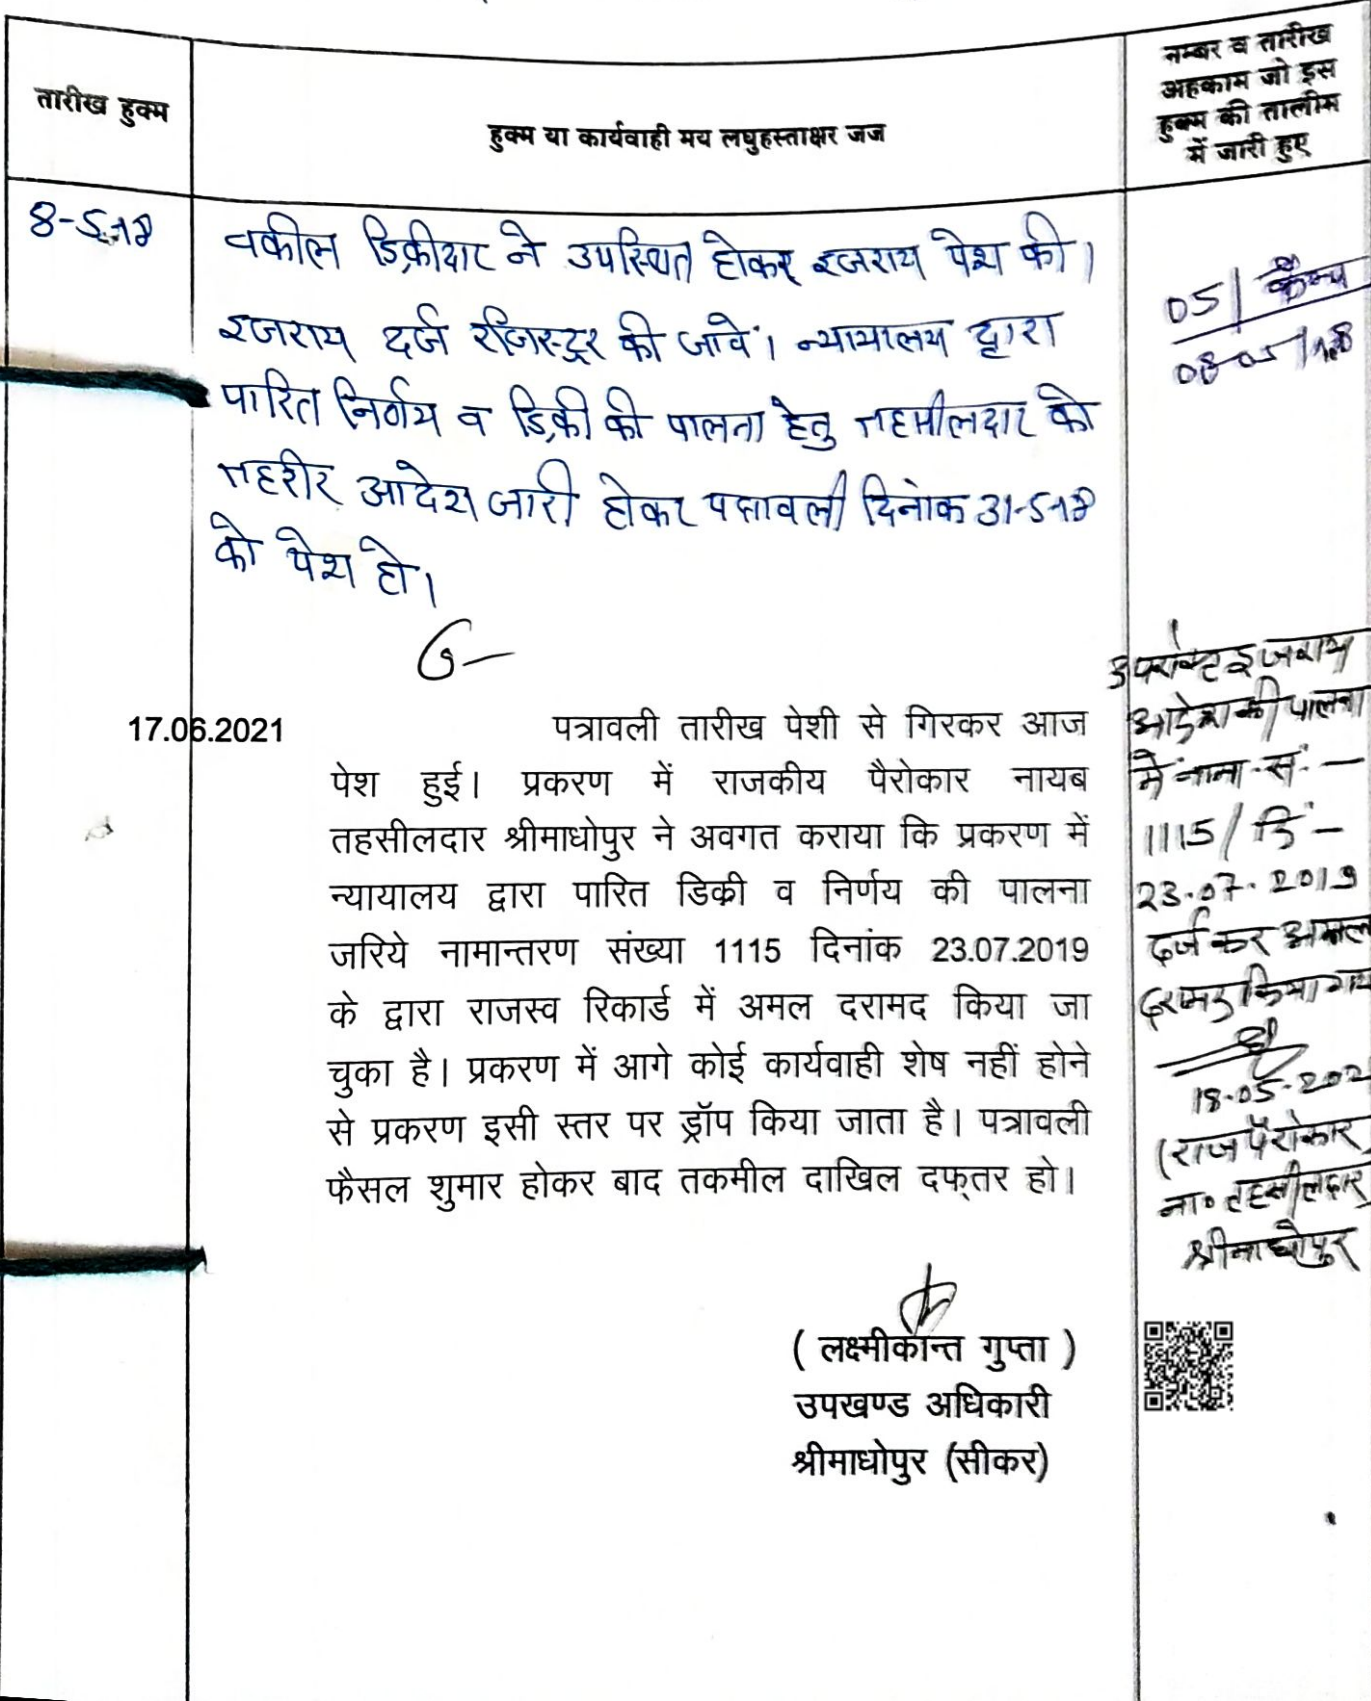 तारीख हुक्म
हुक्म या कार्यवाही मय लघुहस्ताक्षर जज
नम्बर व तारीख
अहकाम जो इस
हुक्म की तालीम
में जारी हुए
8-5-18
वकील डिक्रीदार ने उपस्थित होकर इजराय पेश की।
इजराय दर्ज रजिस्टर की जावे। न्यायालय द्वारा
पारित निर्णय व डिक्री की पालना हेतु तहसीलदार को
तहरीर आदेश जारी होकर पत्रावली दिनांक 31-5-18
को पेश हो।
05/कैम्प
08-05/18
17.06.2021
पत्रावली तारीख पेशी से गिरकर आज
पेश हुई। प्रकरण में राजकीय पैरोकार नायब
तहसीलदार श्रीमाधोपुर ने अवगत कराया कि प्रकरण में
न्यायालय द्वारा पारित डिक्री व निर्णय की पालना
जरिये नामान्तरण संख्या 1115 दिनांक 23.07.2019
के द्वारा राजस्व रिकार्ड में अमल दरामद किया जा
चुका है। प्रकरण में आगे कोई कार्यवाही शेष नहीं होने
से प्रकरण इसी स्तर पर ड्रॉप किया जाता है। पत्रावली
फैसल शुमार होकर बाद तकमील दाखिल दफ्तर हो।
( लक्ष्मीकान्त गुप्ता )
उपखण्ड अधिकारी
श्रीमाधोपुर (सीकर)
उपरोक्त इजराय
आदेश की पालना
में नामा. सं. –
1115/ दि. –
23.07.2019
दर्ज कर अमल
दरामद किया गया
18-05-202
(राज पैरोकार
ना० तहसीलदार
श्रीमाधोपुर